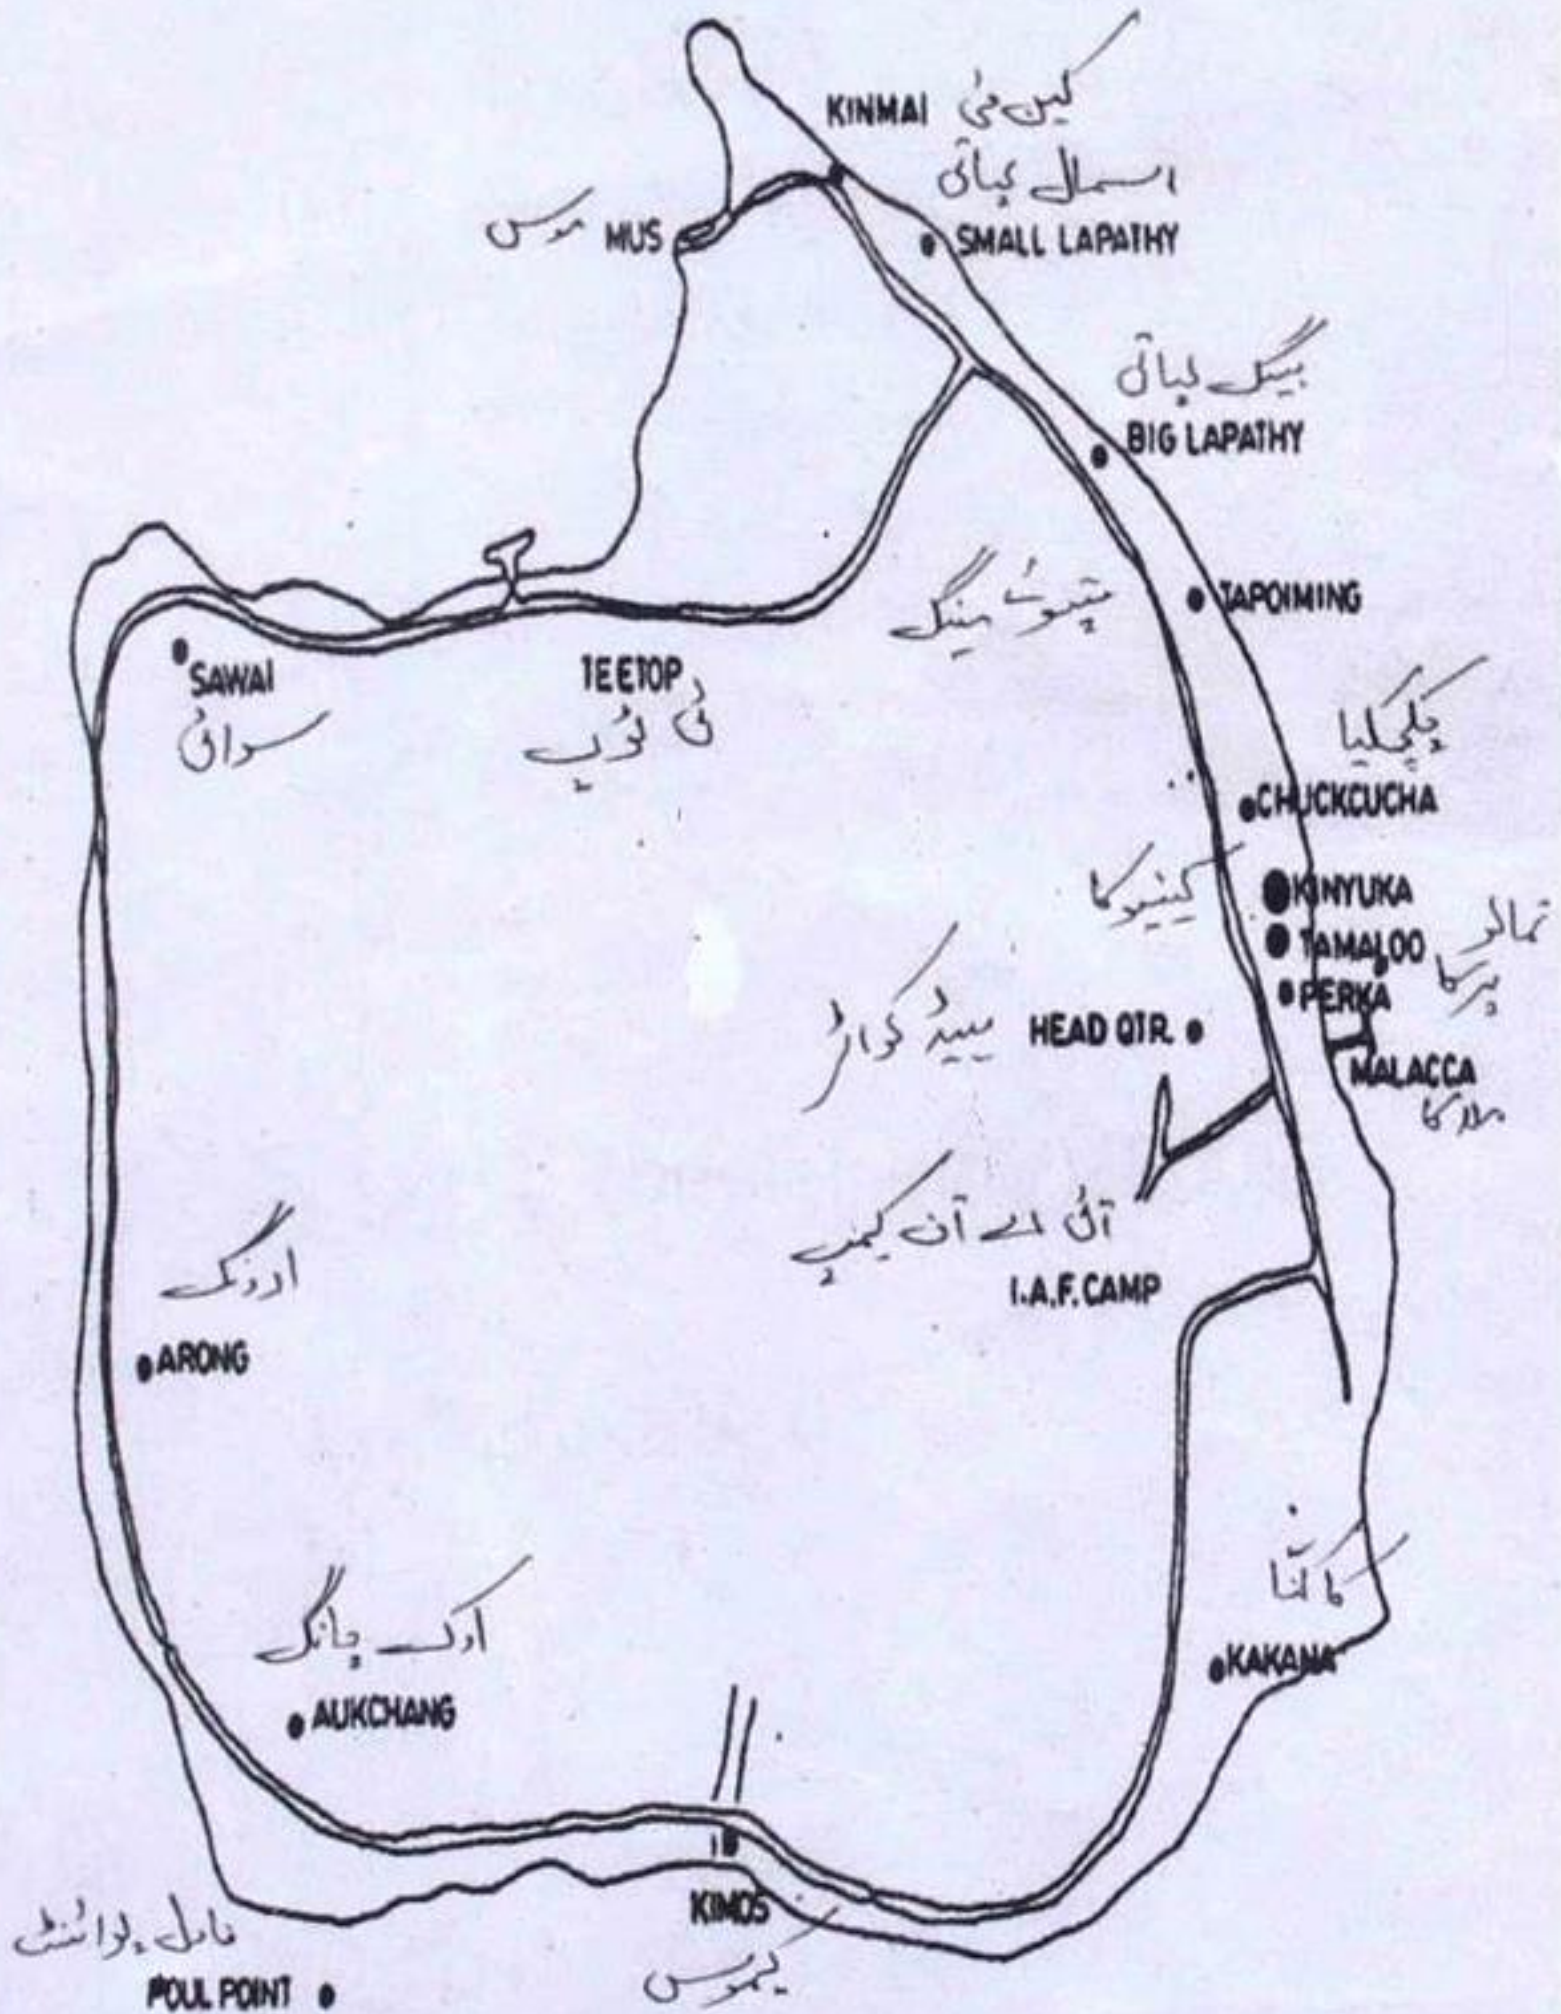 KINMAI کین مئ
اسمال لپاتی
موس MUS
SMALL LAPATHY
بیگ لپاتی
BIG LAPATHY
TAPOIMING
SAWAI
سوائی
TEETOP
ٹی ٹوپ
CHUCKCUCHA
کینیوکا
KINYUKA
تمالو
TAMALOO
پرکا
PERKA
ہیڈ کواٹر HEAD QTR.
MALACCA
ملاکا
آئی اے آف کیمپ
I.A.F. CAMP
ارونگ
ARONG
KAKANA
اوک چانگ
AUKCHANG
KIMOS
کیموس
فاول پوائنٹ
FOUL POINT